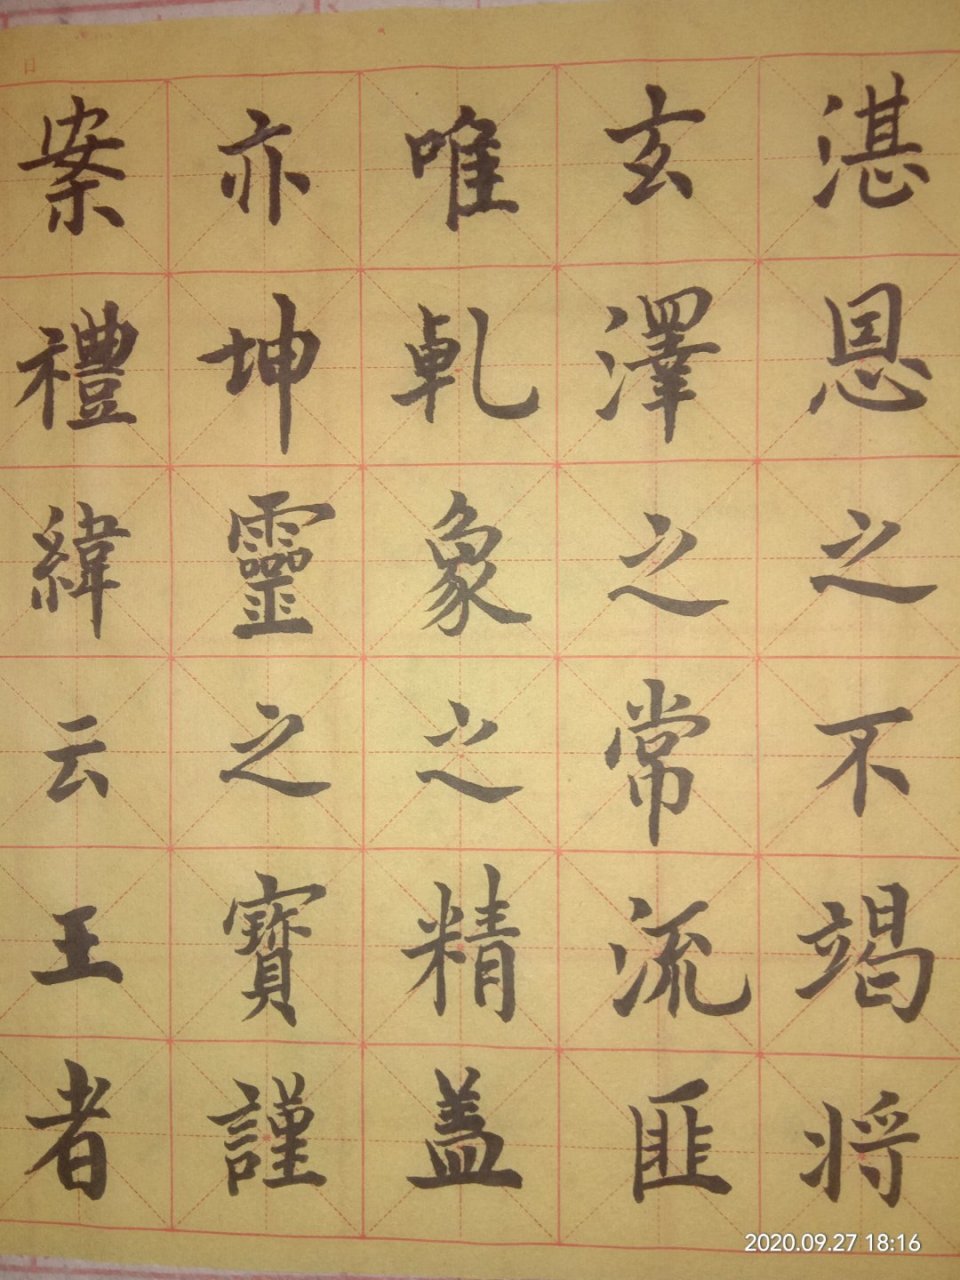 湛恩之不竭将
玄澤之常流匪
唯乹象之精盖
亦坤靈之寶謹
案禮緯云王者
2020.09.27 18:16